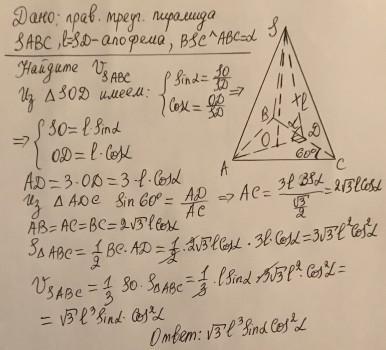 Дано: прав. треуг. пирамида
SABC, l=SD-апофема, BSC^ABC=α
Найдите V_SABC
Из △SOD имеем: { sinα = SO/SD
cosα = OD/SD ⇒
⇒ { SO = l·sinα
OD = l·cosα
AD = 3·OD = 3·l·cosα
Из △ADC sin 60° = AD/AC ⇒ AC = 3l cosα / (√3/2) = 2√3 l cosα
AB = AC = BC = 2√3 l cosα
S△ABC = 1/2 BC·AD = 1/2·2√3 l cosα·3l·cosα = 3√3 l² cos²α
V_SABC = 1/3 SO·S△ABC = 1/3·l sinα·3√3 l²·cos²α =
= √3 l³ sinα·cos²α
Ответ: √3 l³ sinα cos²α
S
B
O
l
α
D
A
60°
C